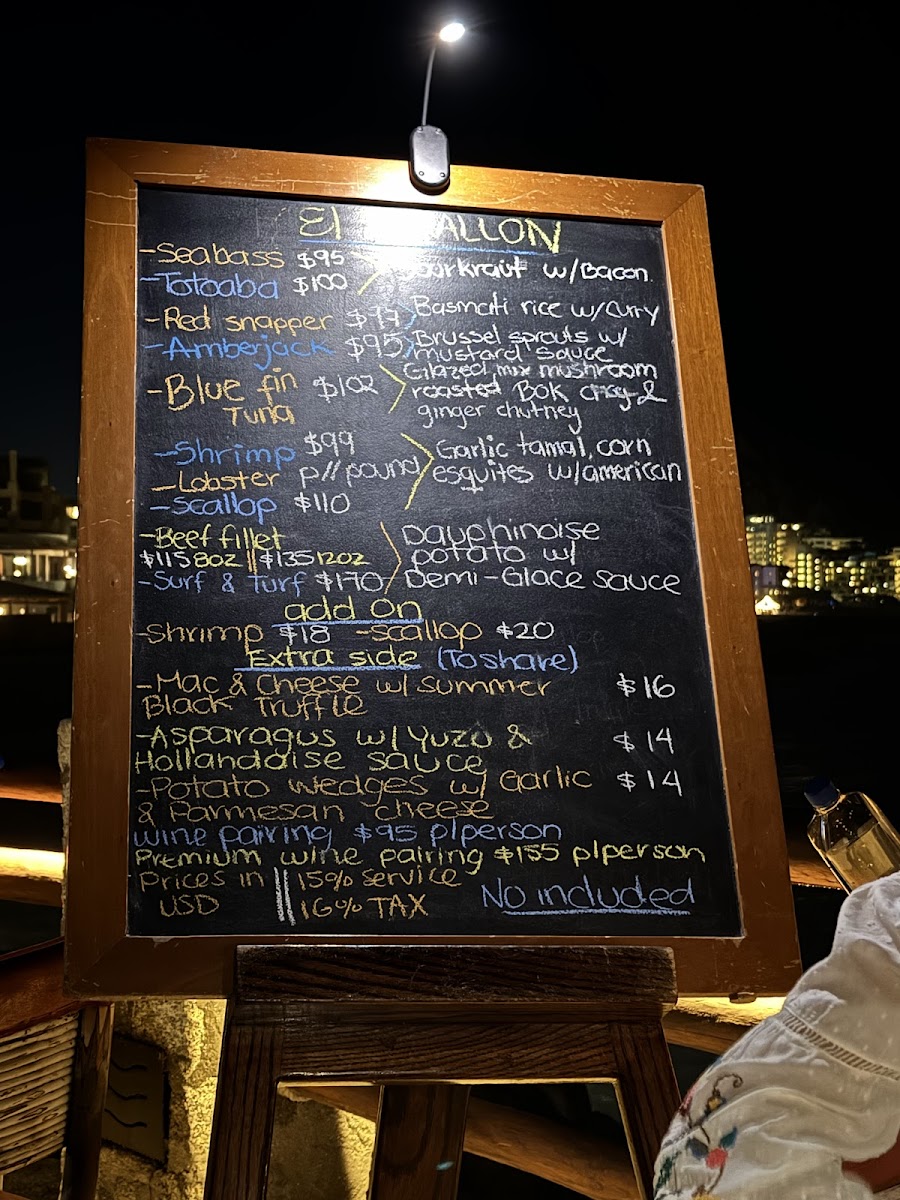 El
-Seabass $95
-Totoaba $100
w/Bacon.
-Red snapper
Basmati rice w/curry
-Amberjack $95
Brussel sprouts w/
mustard sauce
-Blue fin
Tuna $102
Glazed mix mushroom
roasted Bok choy &
ginger chutney
-Shrimp $99
-Lobster p//pound
-scallop $110
Garlic tamal, corn
esquites w/american
-Beef fillet
$115 8oz || $135 12oz
-Surf & Turf $170
Dauphinoise
potato w/
Demi-Glace sauce
add On
-Shrimp $18 -scallop $20
Extra side (To share)
-Mac & Cheese w/ summer $16
Black Truffle
-Asparagus w/ Yuzu & $14
Hollandaise sauce
-Potato wedges w/ Garlic $14
& Parmesan cheese
wine pairing $95 p/person
Premium wine pairing $155 p/person
Prices in || 15% service
USD || 16% TAX
No included